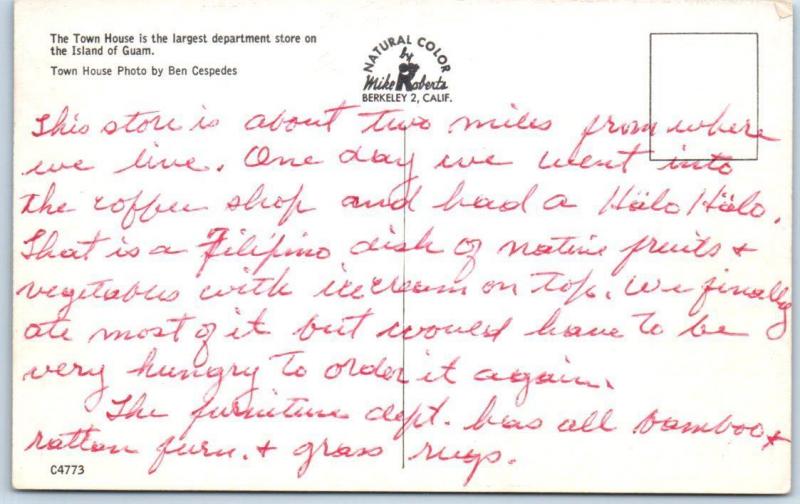 The Town House is the largest department store on
the Island of Guam.
Town House Photo by Ben Cespedes
NATURAL COLOR
by
Mike Roberts
BERKELEY 2, CALIF.
This store is about two miles from where
we live. One day we went into
the coffee shop and had a Hälo Hälo.
That is a Filipino dish of native fruits +
vegetables with icecream on top. We finally
ate most of it but would have to be
very hungry to order it again.
The furniture dept. has all bamboo +
rattan furn. + grass rugs.
C4773